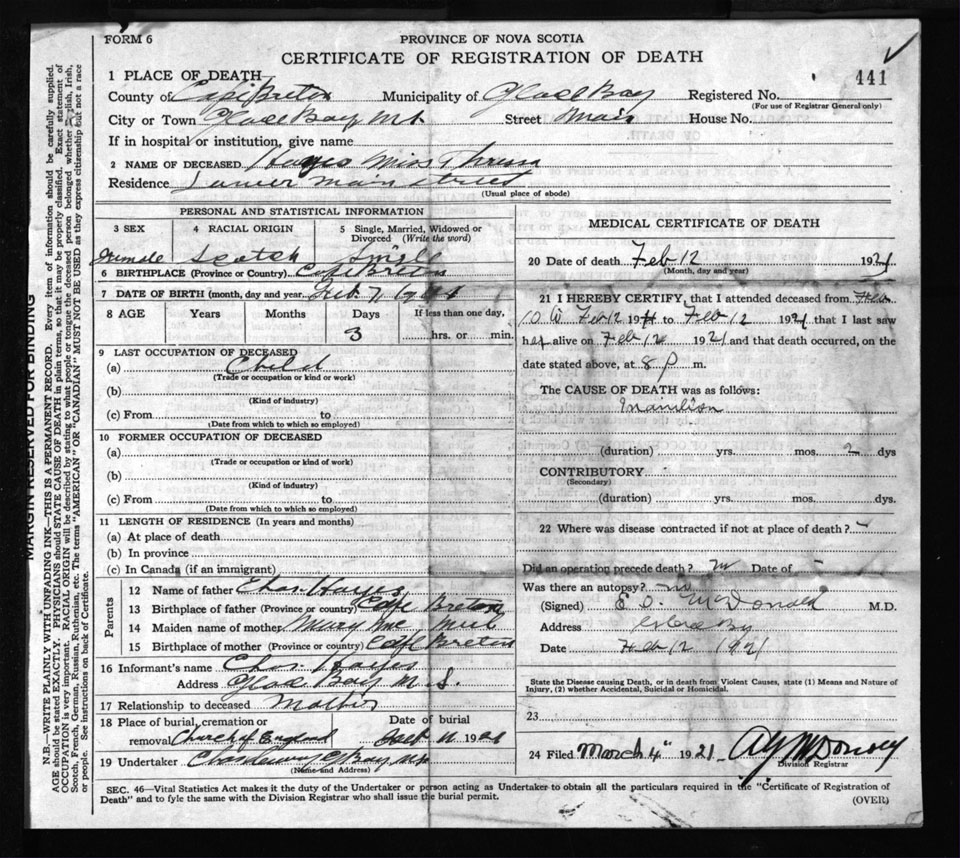 FORM 6
PROVINCE OF NOVA SCOTIA
CERTIFICATE OF REGISTRATION OF DEATH
441
1 PLACE OF DEATH
County of Cape Breton Municipality of Glace Bay Registered No.
(For use of Registrar General only)
City or Town Glace Bay Street Main House No.
If in hospital or institution, give name
2 NAME OF DECEASED Hayes Miss
Residence Lower Main Street
(Usual place of abode)
PERSONAL AND STATISTICAL INFORMATION
3 SEX 4 RACIAL ORIGIN 5 Single, Married, Widowed or Divorced (Write the word)
Female Scotch Single
6 BIRTHPLACE (Province or Country) Cape Breton
7 DATE OF BIRTH (month, day and year Feb. 7
8 AGE Years Months Days If less than one day,
3 hrs. or min.
9 LAST OCCUPATION OF DECEASED
(a) Child
(Trade or occupation or kind or work)
(b)
(Kind of industry)
(c) From to
(Date from which to which so employed)
10 FORMER OCCUPATION OF DECEASED
(a)
(Trade or occupation or kind of work)
(b)
(Kind of industry)
(c) From to
(Date from which to which so employed)
11 LENGTH OF RESIDENCE (In years and months)
(a) At place of death
(b) In province
(c) In Canada (if an immigrant)
Parents
12 Name of father Chas. Hayes
13 Birthplace of father (Province or country) Cape Breton
14 Maiden name of mother Mary
15 Birthplace of mother (Province or country) Cape Breton
16 Informant's name Chas. Hayes
Address Glace Bay N. S.
17 Relationship to deceased
18 Place of burial, cremation or Date of burial
removal Church of England
19 Undertaker
(Name and Address)
MEDICAL CERTIFICATE OF DEATH
20 Date of death Feb 12 1921
(Month, day and year)
21 I HEREBY CERTIFY, that I attended deceased from
Feb 12 19 to Feb 12 1921 that I last saw
her alive on Feb 12 1921 and that death occurred, on the
date stated above, at 8 p m.
The CAUSE OF DEATH was as follows:
Inanition
(duration) yrs. mos. 2 dys
CONTRIBUTORY
(Secondary)
(duration) yrs. mos. dys.
22 Where was disease contracted if not at place of death?
Did an operation precede death? no Date of
Was there an autopsy? no
(Signed) McDonald M.D.
Address Glace Bay
Date Feb 12 1921
State the Disease causing Death, or in death from Violent Causes, state (1) Means and Nature of
Injury, (2) whether Accidental, Suicidal or Homicidal.
23
24 Filed March 4" 1921.
Division Registrar
SEC. 46—Vital Statistics Act makes it the duty of the Undertaker or person acting as Undertaker to obtain all the particulars required in the "Certificate of Registration of
Death" and to fyle the same with the Division Registrar who shall issue the burial permit.
(OVER)
MARGIN RESERVED FOR BINDING
N.B.—WRITE PLAINLY WITH UNFADING INK—THIS IS A PERMANENT RECORD. Every item of information should be carefully supplied.
AGE should be stated EXACTLY. PHYSICIANS should STATE CAUSE OF DEATH in plain terms, so that it may be properly classified. Exact statement of
OCCUPATION is very important. RACIAL ORIGIN will be described by stating to what people or tongue the deceased person belonged whether English, Irish,
Scotch, French, German, Russian, Ruthenian, etc. The terms "AMERICAN" OR "CANADIAN" MUST NOT BE USED as they express citizenship but not a race
or people. See instructions on back of Certificate.